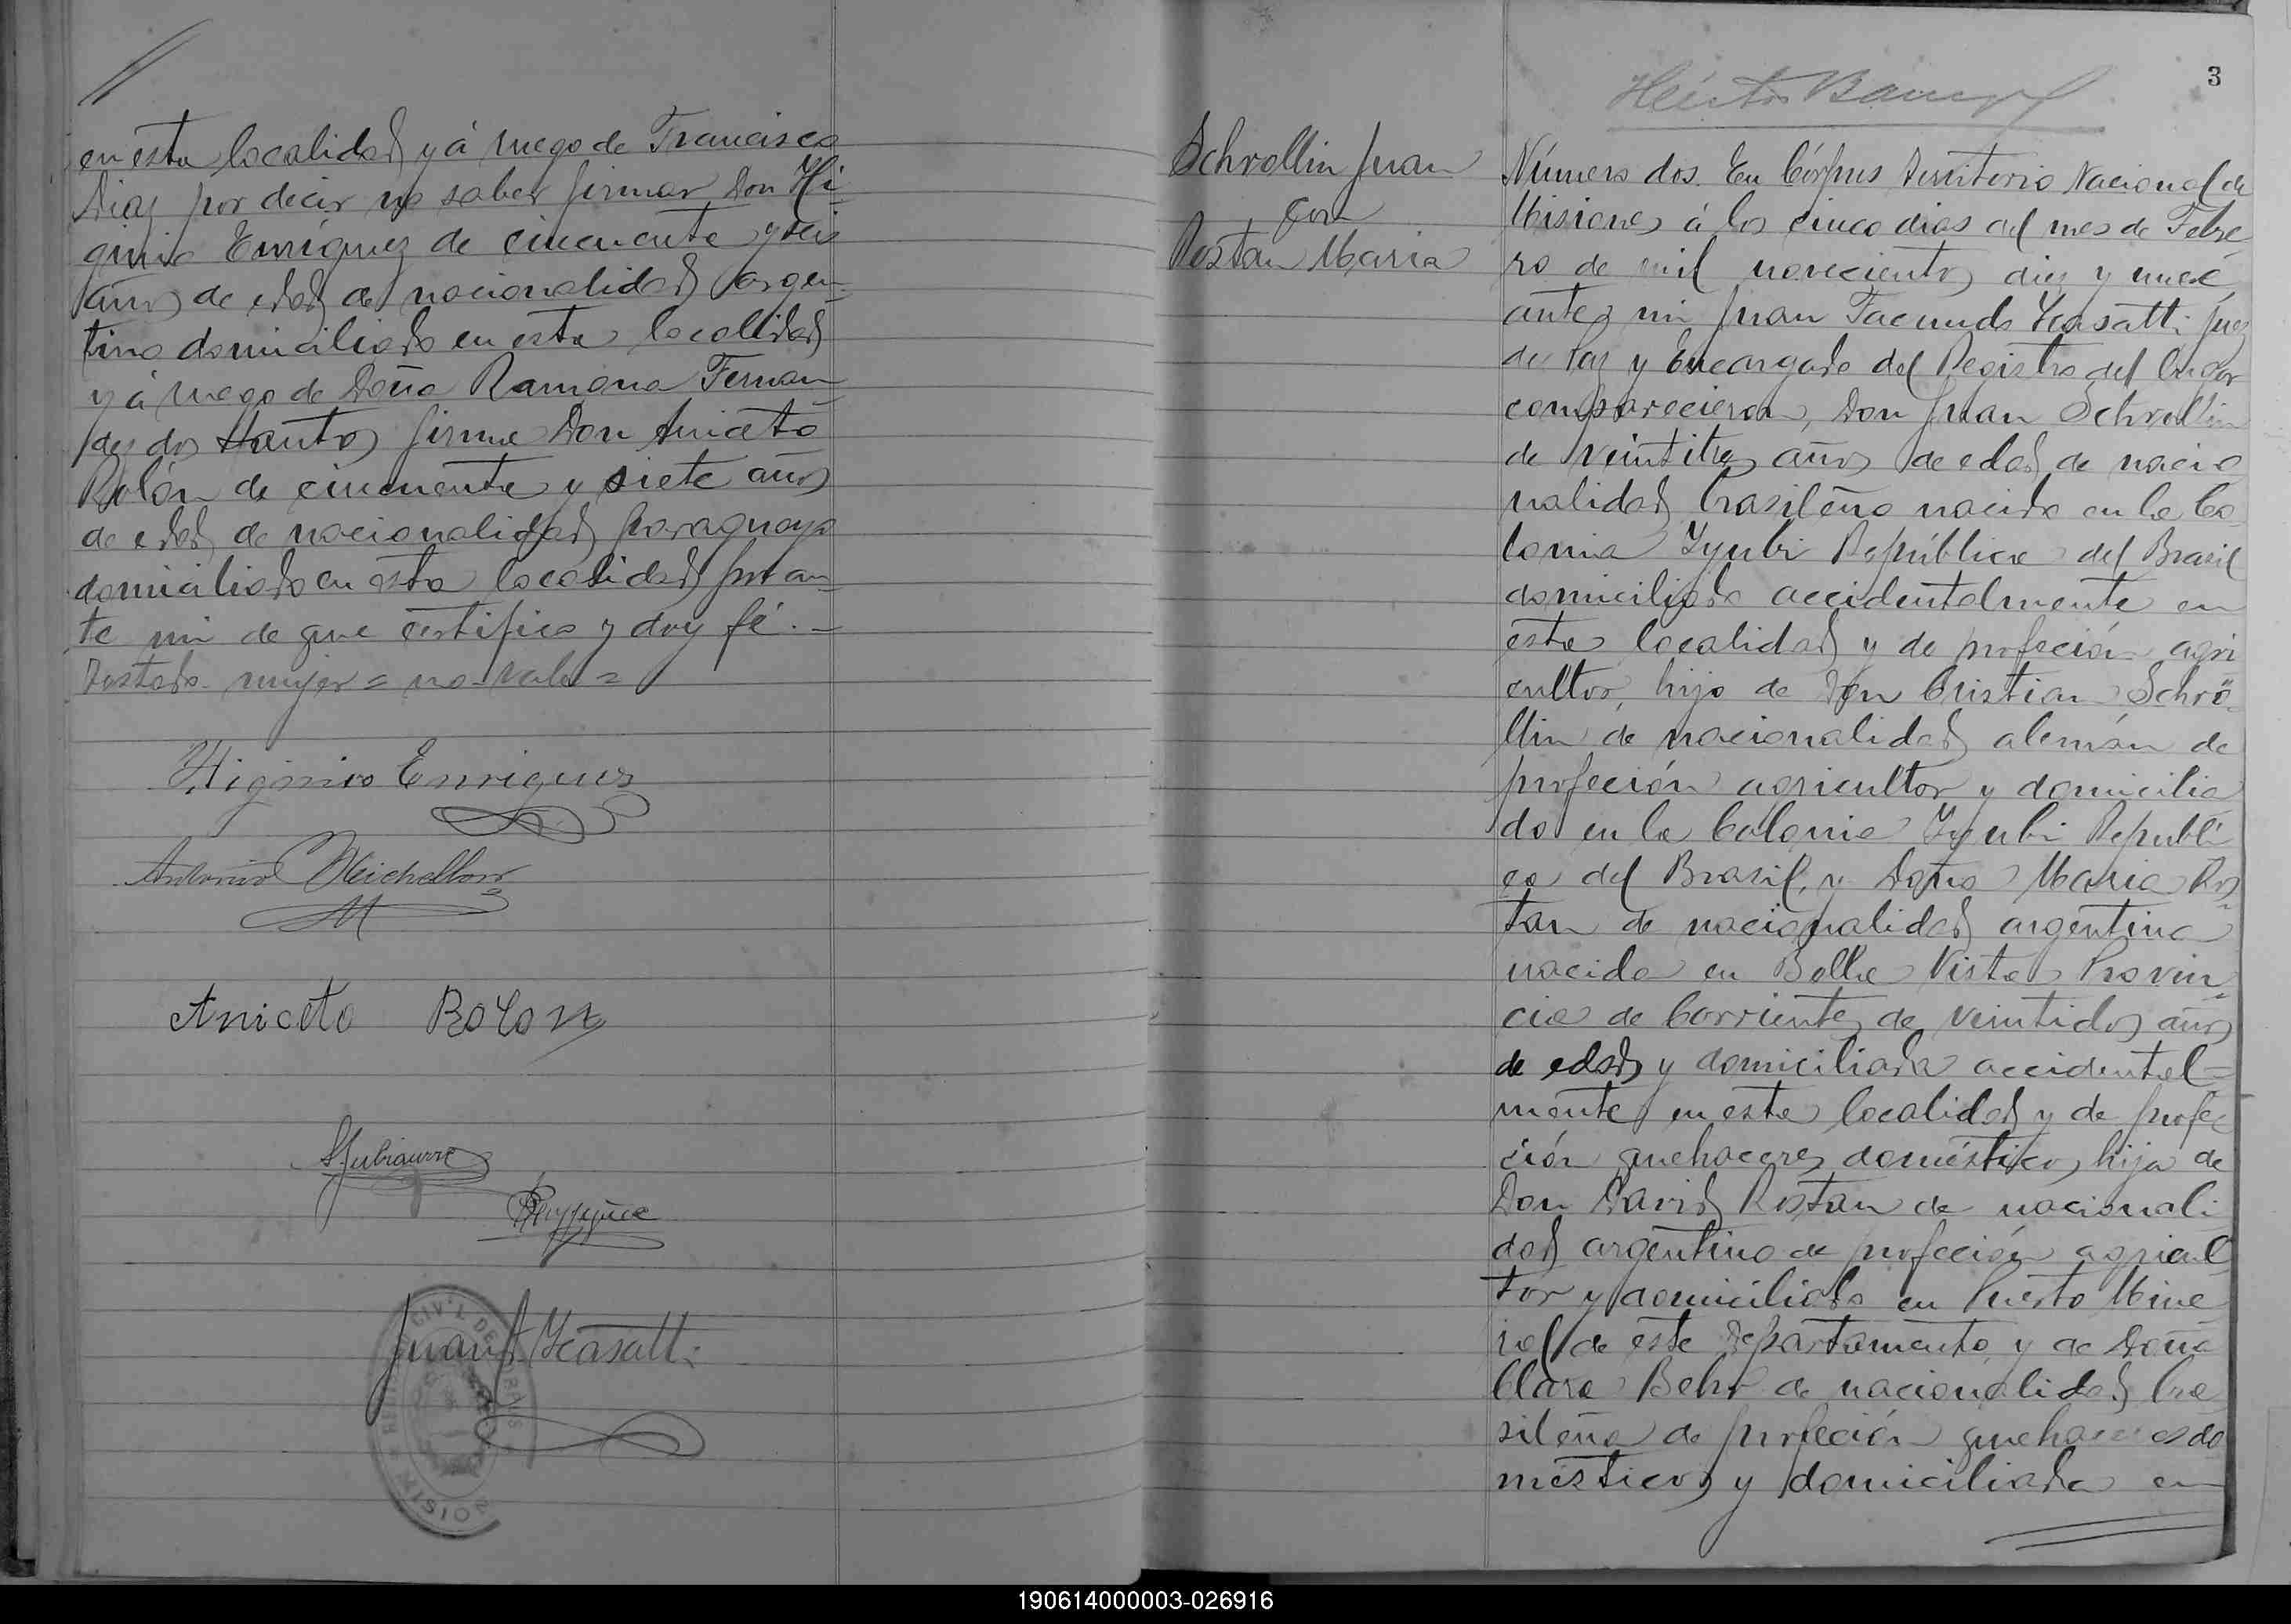 en esta localidad y á ruego de Francisco
Diaz por decir no saber firmar Don Hi-
ginio Enríquez de cincuenta y seis
años de edad de nacionalidad argen-
tino domiciliado en esta localidad
y á ruego de Doña Ramona Fernan-
dez dos Santos firma Don Aniceto
Rolón de cincuenta y siete años
de edad de nacionalidad paraguayo
domiciliado en esta localidad por an-
te mi de que certifico y doy fé.=
Testado mujer = no vale =
Higinio Enriquez
Antonio
Aniceto Rolon
Juan F. Ycasatti
3
Héctor
Schrollin Juan
con
Rostan Maria
Número dos. En Córpus Territorio Nacional de
Misiones á los cinco dias del mes de Febre
ro de mil novecientos diez y nueve
antes mi Juan Facundo Ycasatti Juez
de Paz y Encargado del Registro del lugar
comparecieron, Don Juan Schrollin
de veintitres años de edad de nacio
nalidad brasileño nacido en la Co
lonia Yyubi República del Brasil
domiciliado accidentalmente en
esta localidad y de profeción agri
cultor, hijo de Don Cristian Schrö-
llin de nacionalidad alemán de
profeción agricultor y domicilia
do en la Colonia Yyubi Republi
ca del Brasil, y Doña Maria Ros
tan de nacionalidad argentina
nacida en Bella Vista Provin-
cia de Corrientes de veintidos años
de edad y domiciliada accidental=
mente en esta localidad y de profe
ción quehaceres domésticos, hija de
Don David Rostan de nacionali
dad argentino de profeción agricul
tor y domiciliado en Puerto Mine
ral de este Departamento y de Doña
Clara Behr de nacionalidad bra
sileña de profeción quehaceres do
mésticos y domiciliada en
190614000003-026916